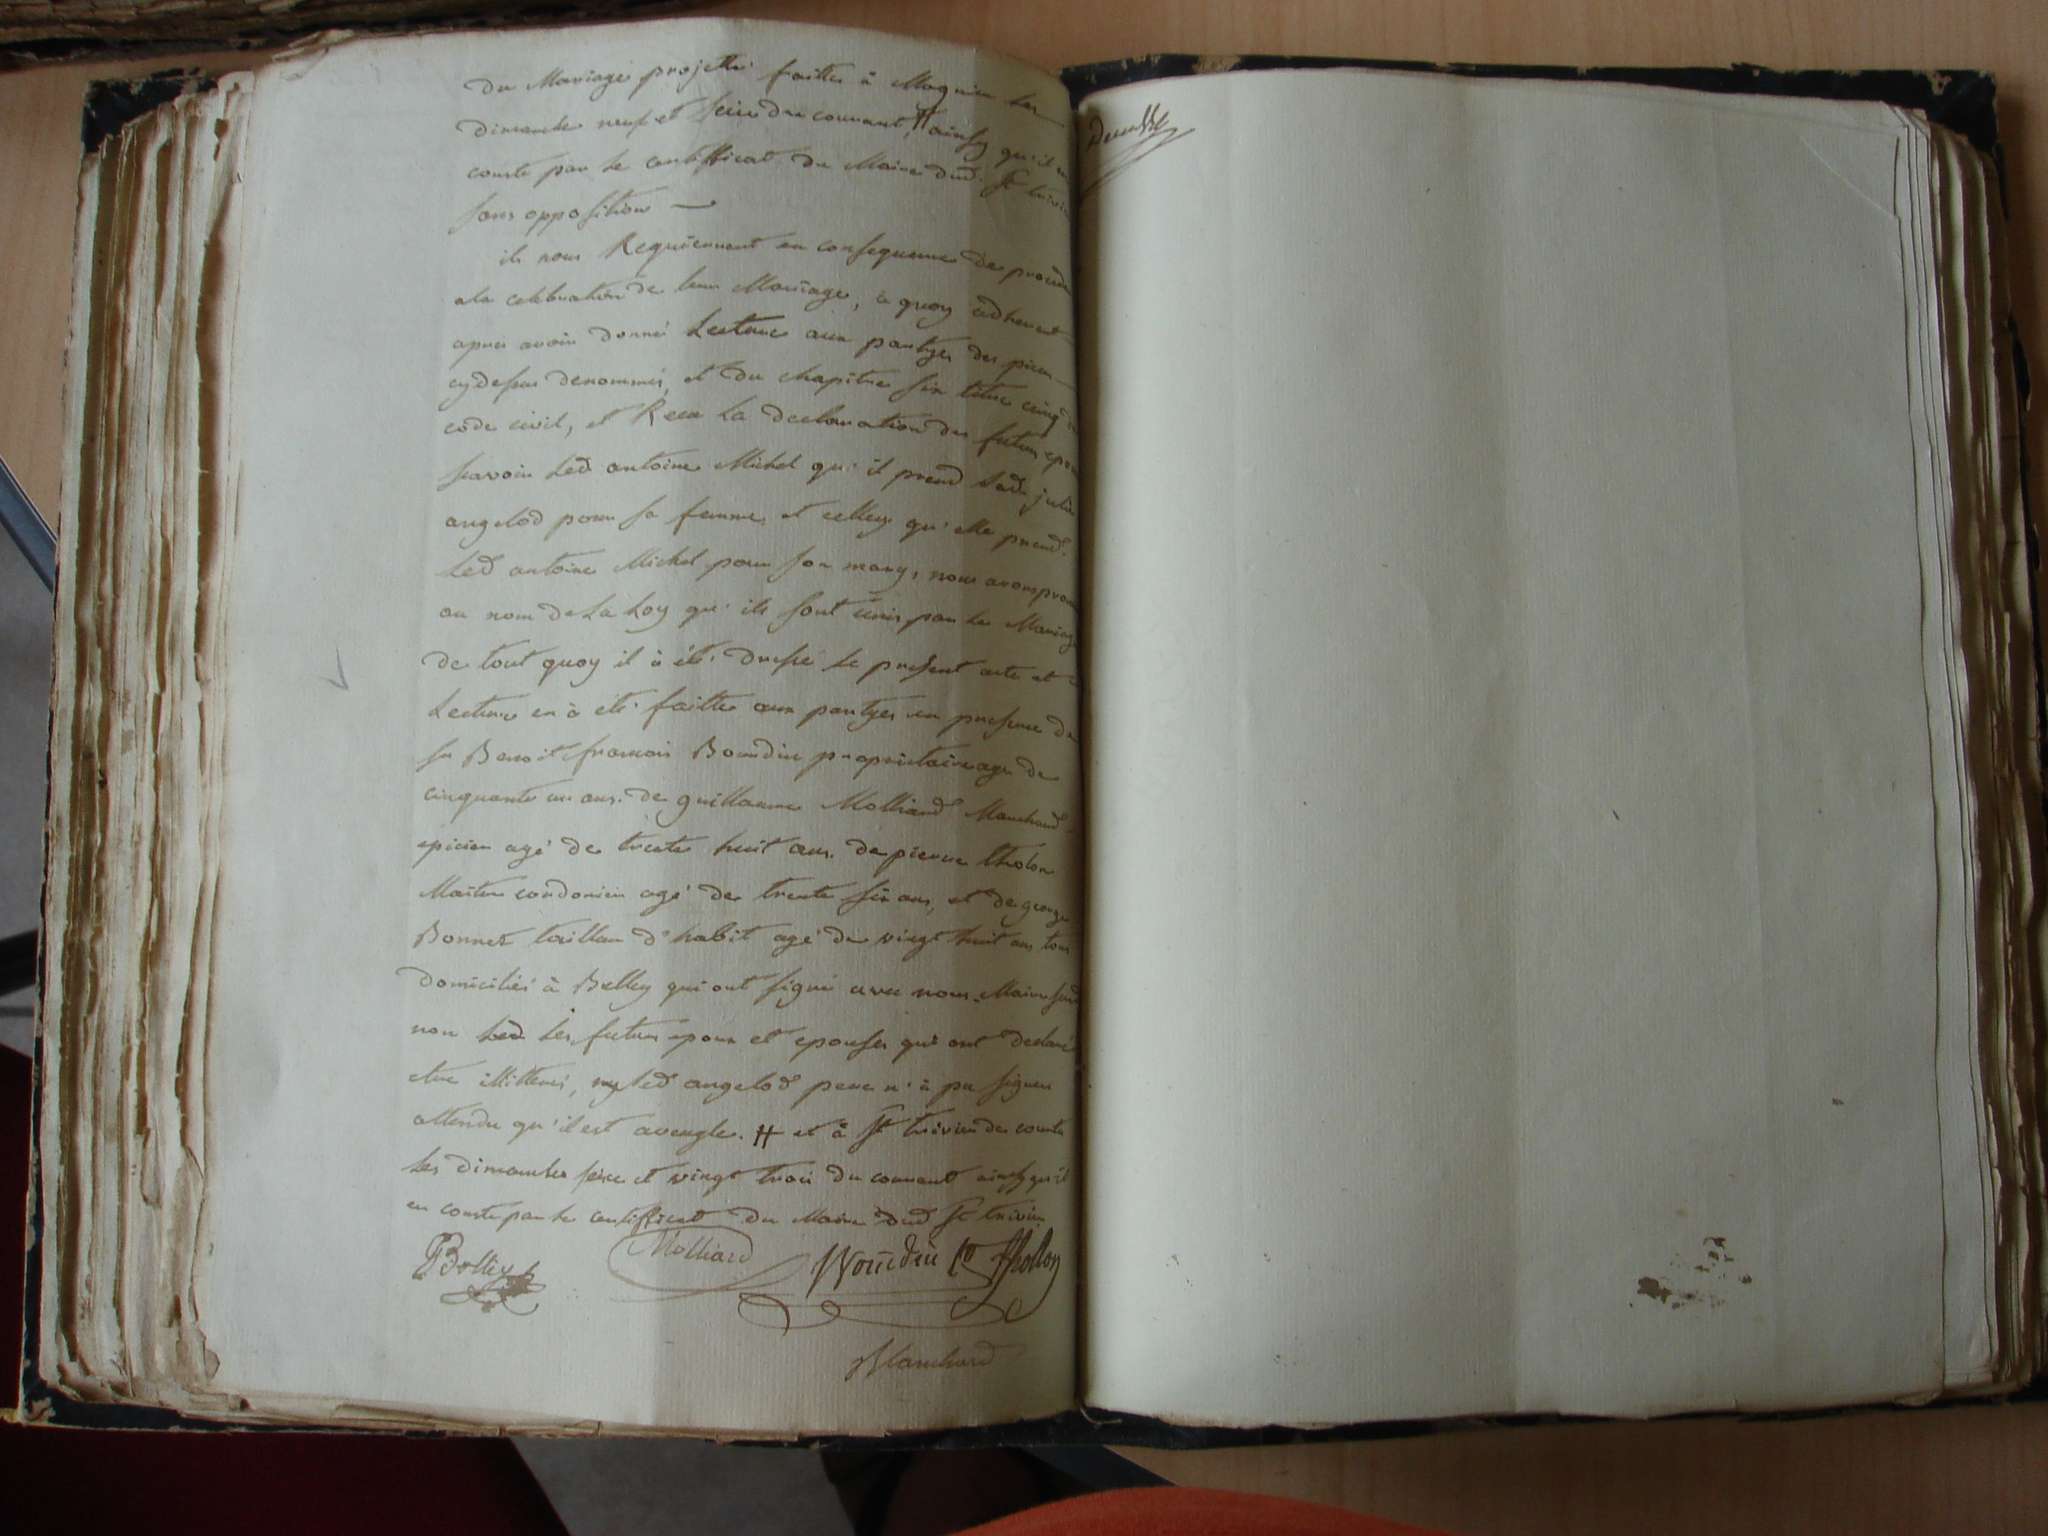 du Mariage projetté faittes à Magnieu les
dimanche neuf et seize du courant, # ainsy qu'il en
conste par le certifficat du Maire dud. St trivier
sans opposition —
ils nous Requierrent en consequence de proceder
a la celebration de leur Mariage, à quoy adherent
apres avoir donné Lecture aux partyes des pieces
cydessus denommés, et du chapitre six titre cinq du
code civil, et Recu la declaration des futurs epoux
scavoir led antoine Michel qu'il prend lade julie
angelod pour sa femme, et cellecy qu'elle prend
led antoine Michel pour son mary, nous avons prononcé
au nom de La Loy qu'ils sont unis par le Mariage
de tout quoy il à été dressé le present acte et
Lecture en à été faitte aux partyes en presence de
sr Benoit francois Bourdin proprietaire age de
cinquante un ans. de guillaume Molliard Marchand
epicier agé de trente huit ans. de pierre tholon
Maitre cordonier agé de trente six ans, et de george
Bonnet tailleur d'habit agé de vingt huit ans tous
domiciliés à Belley qui ont signé avec nous Maire
non led les futurs epoux et epouse qui ont declaré
etre illitterés, led angelod pere n'à pu signer
attendu qu'il est aveugle. # et à St trivier de courte
les dimanches seize et vingt trois du courant ainsy qu'il
en conste par le certifficat du Maire dud St trivier
Molliard Bourdin Thollon
Blanchard